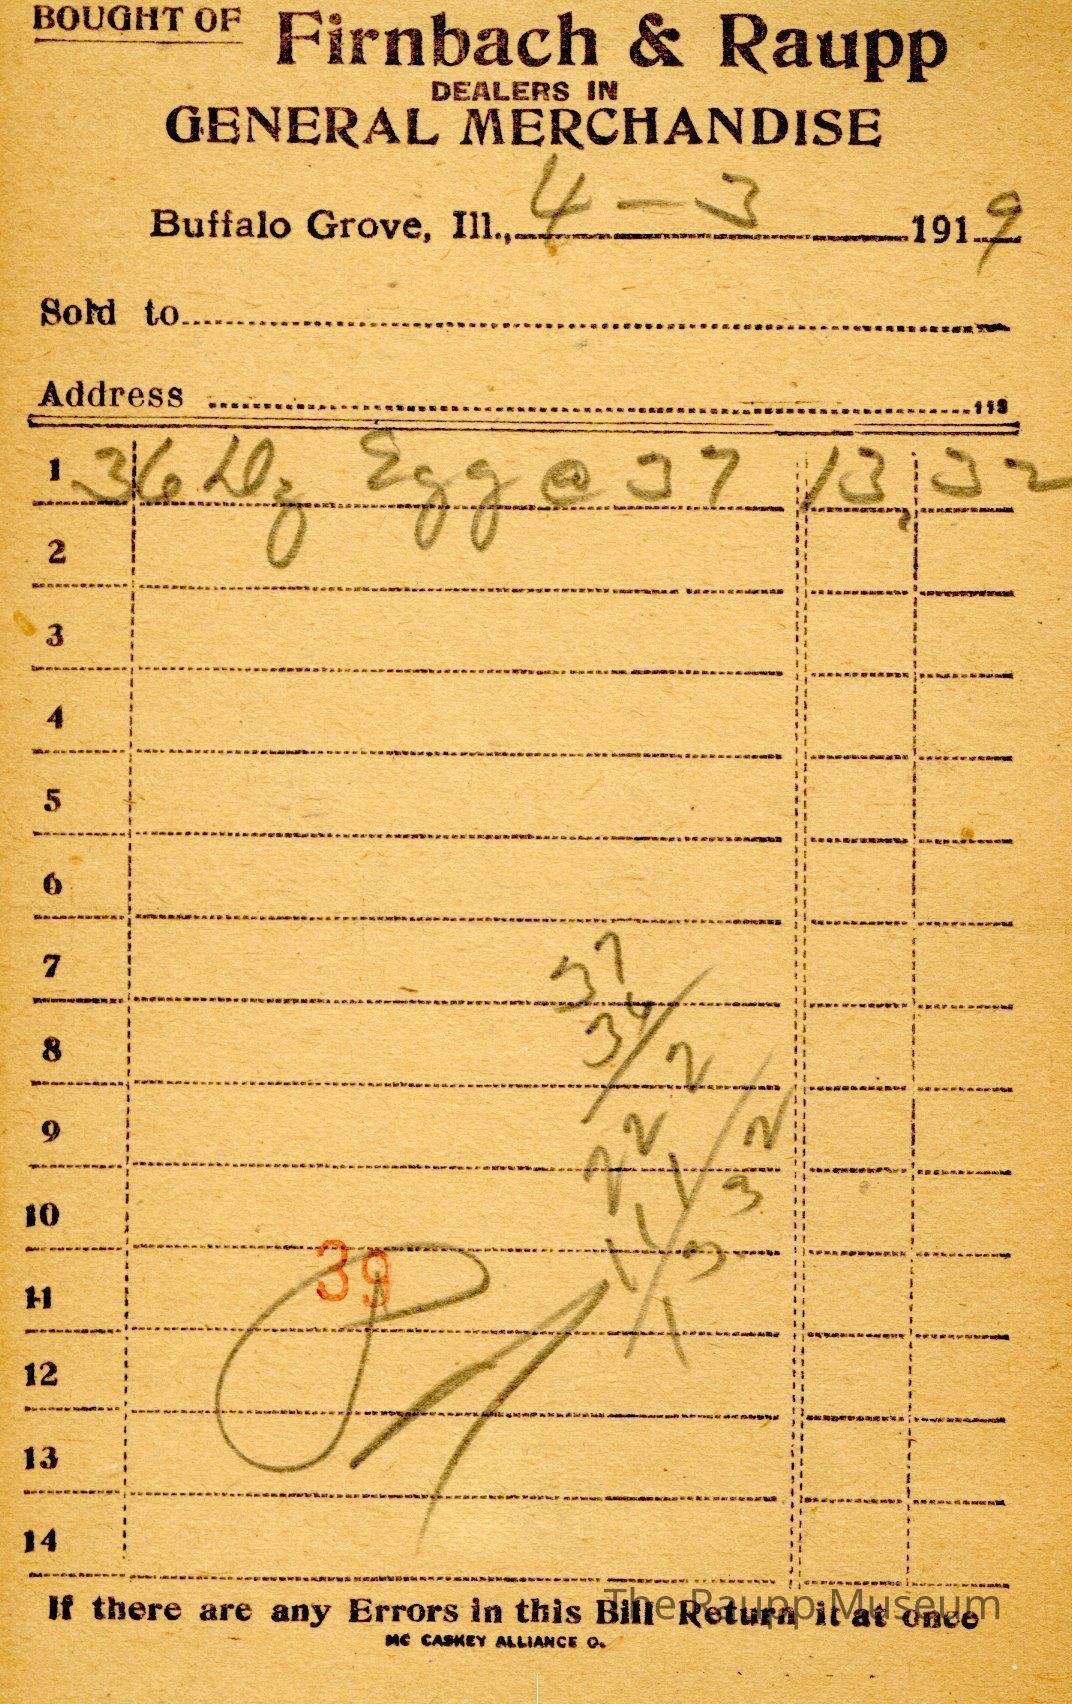 BOUGHT OF Firnbach & Raupp
DEALERS IN
GENERAL MERCHANDISE
Buffalo Grove, Ill., 4-3 1919
Sold to
Address 113
1 36 Dz Egg @ 37 13,32
2
3
4
5
6
7 37
8 36 2
9 22 2
10 11 3
39
11 1
12
13
14
If there are any Errors in this Bill Return it at once
The Raupp Museum
MC CASKEY ALLIANCE O.